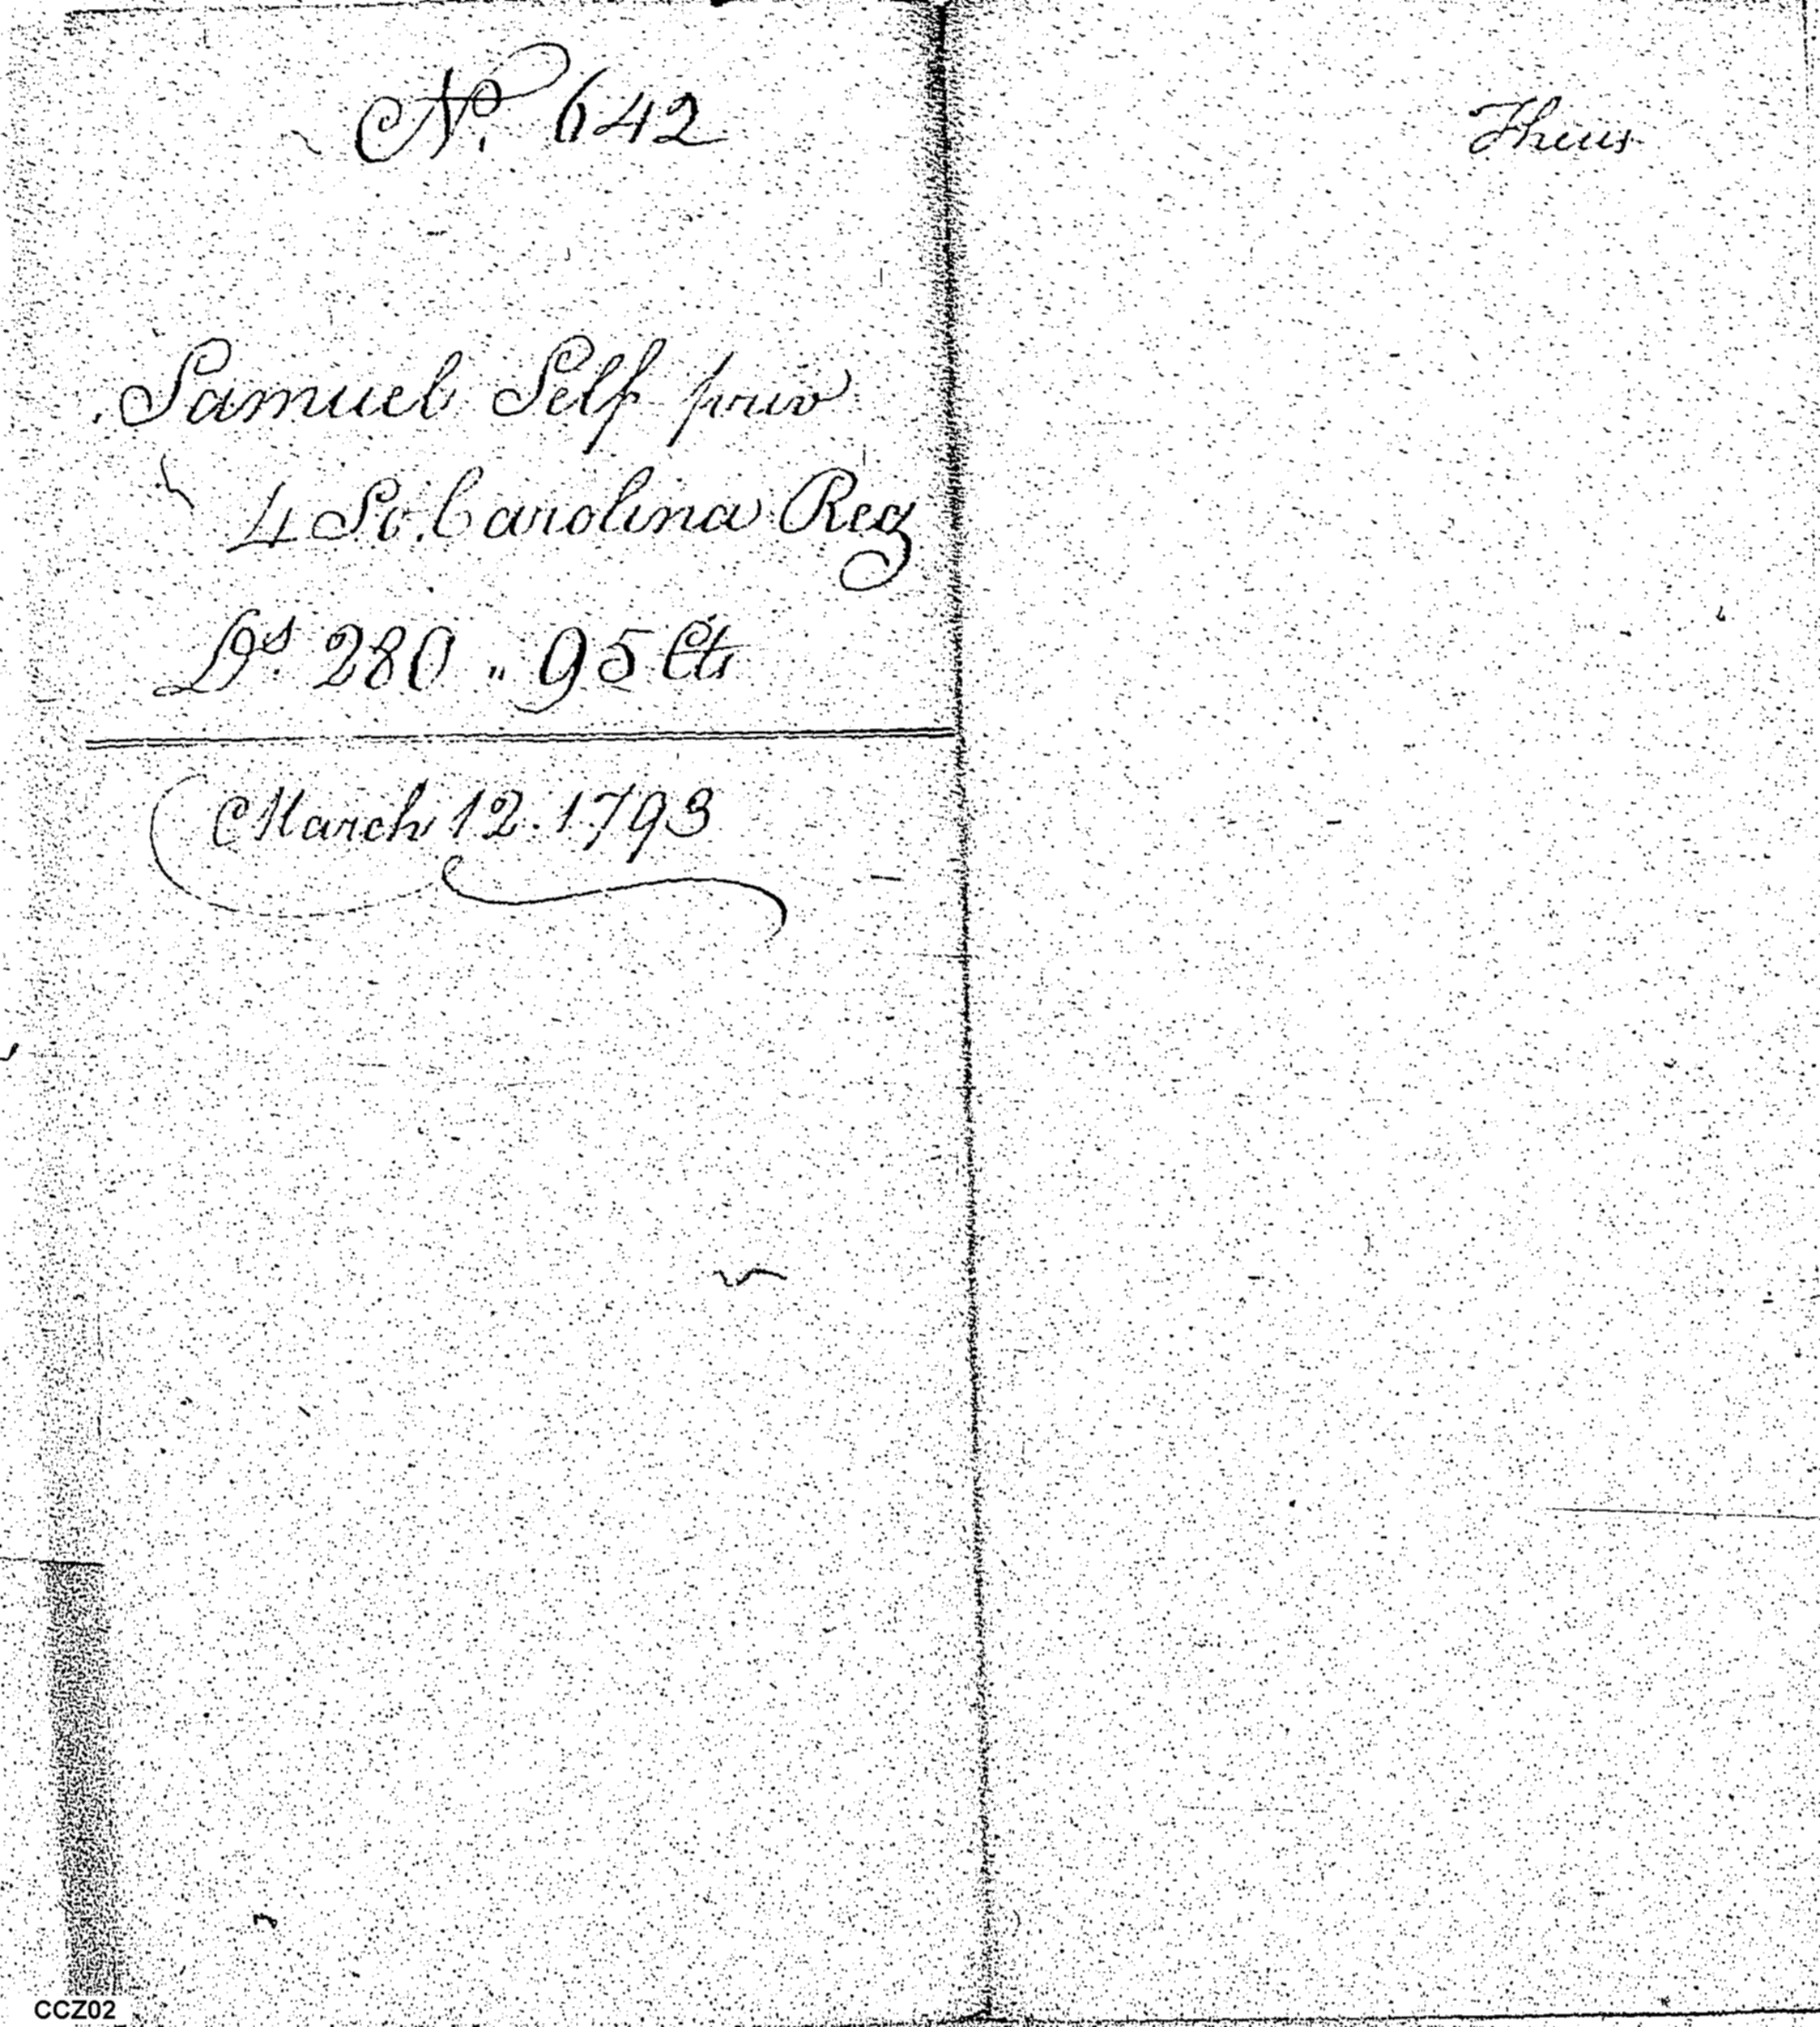 No. 642
Samuel Self priv
4 So. Carolina Reg
Ds. 280 " 95 Cts
March 12. 1793
Theus
CCZ02